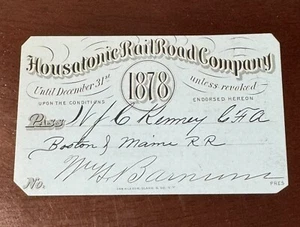 Housatonic Rail Road Company
Until December 31st 1878 unless revoked
UPON THE CONDITIONS ENDORSED HEREON
Pass W J C Kenney G F A
Boston & Maine R.R
Wm H Barnum
No. PRES